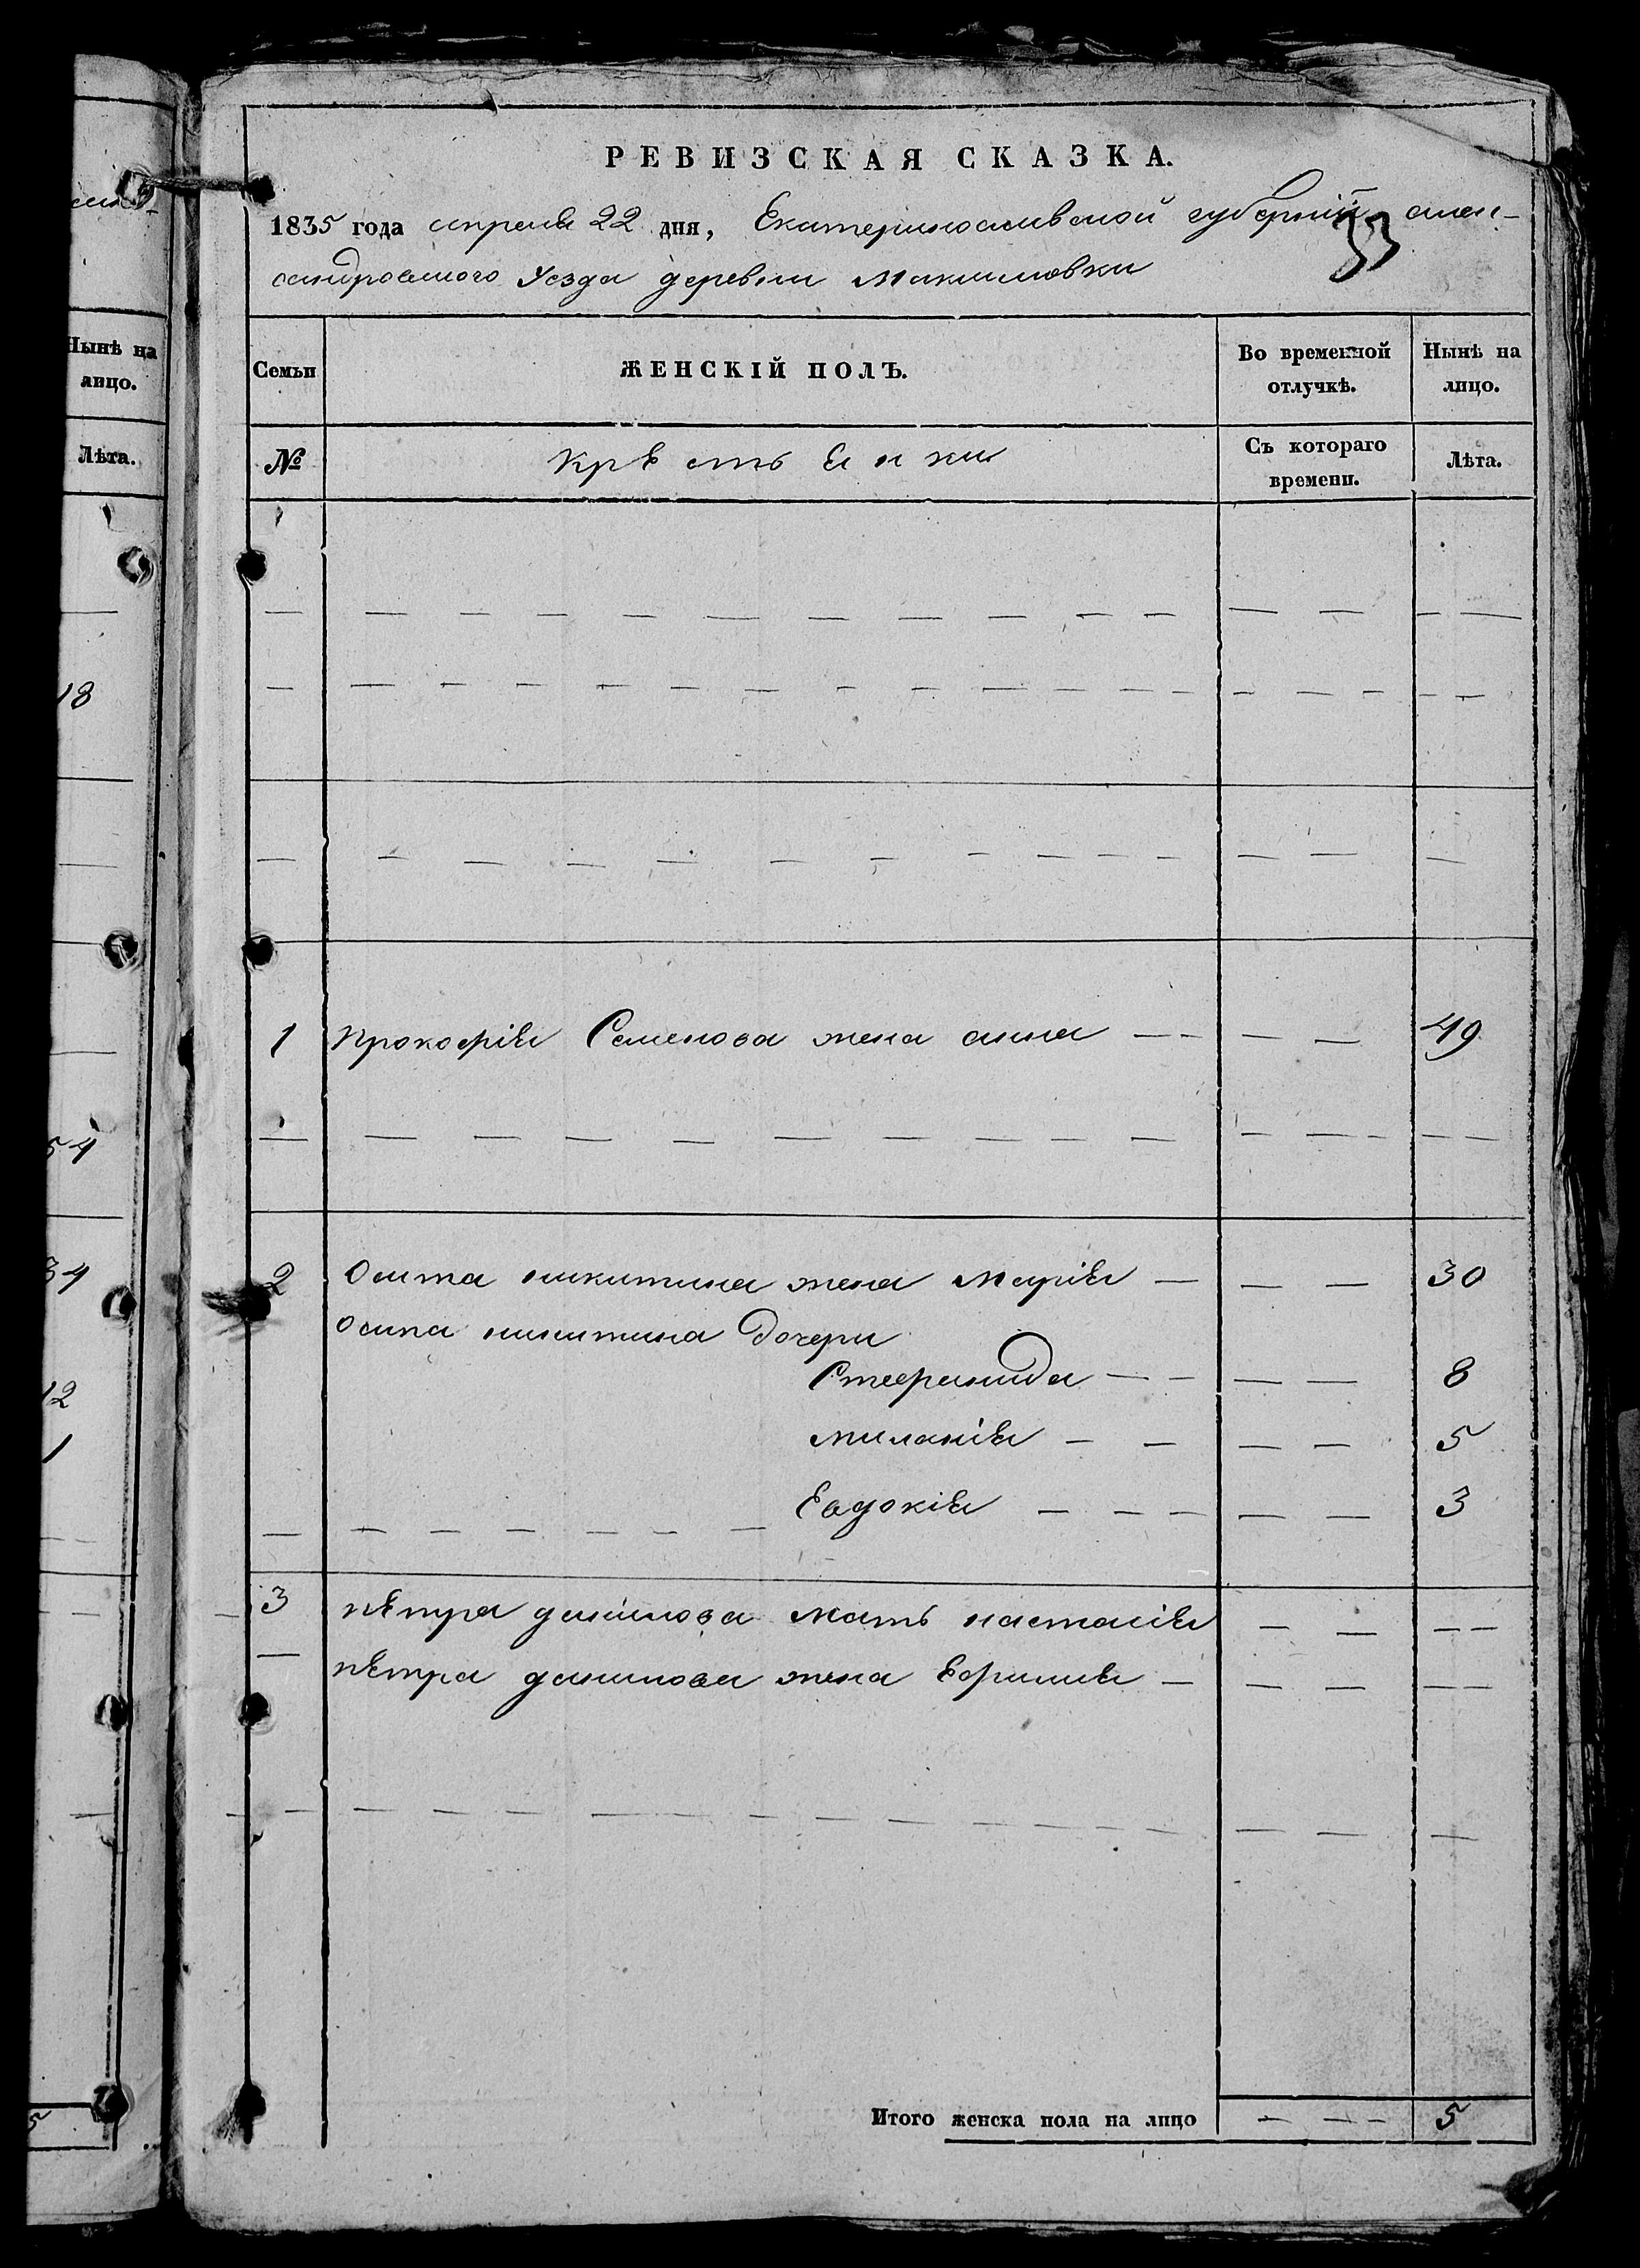 РЕВИЗСКАЯ СКАЗКА.
1835 года апреля 22 дня, Екатеринославской губернии алек-
33
сандровского уезда деревни
Нынѣ на
лицо.
Лѣта.
18
54
34
12
1
5
Семьи
ЖЕНСКІЙ ПОЛЪ.
Во временной
отлучкѣ.
Нынѣ на
лицо.
№
Крѣстьянки
Съ котораго
времени.
Лѣта.
1 прокофія Семенова жена анна — — — — 49
2 Осипа никитина жена Марія — — — 30
Осипа никитина дочери
Стефанида — — — — 8
миланія — — — — 5
Евдокія — — — — — 3
3 пѣтра данилова мать настасія — — — —
пѣтра данилова жена Ефимия — — — — —
Итого женска пола на лицо — — — 5